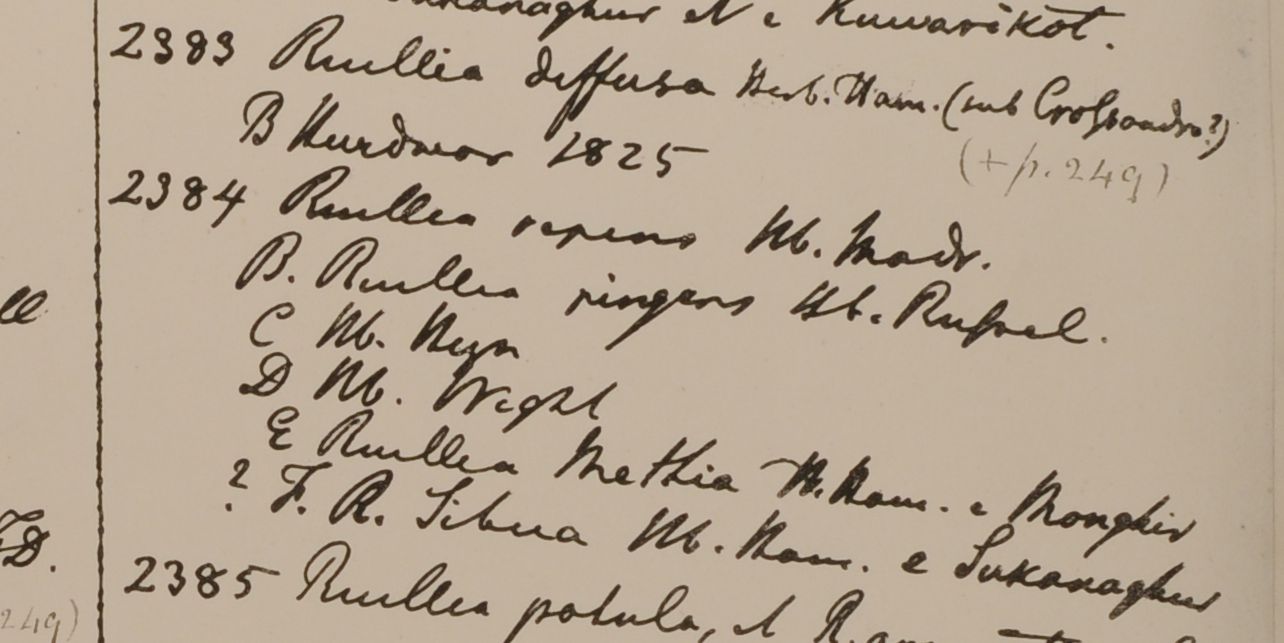 Sukanaghur et N e Kuwarikot.
2383 Ruellia diffusa Herb. Ham. (sub Croſsandra?)
B Hurdwar 1825
(+ p. 249)
2384 Ruellia repens Hb. Madr.
B. Ruellia ringens Hb. Ruſsel.
ll
C Hb. Heyn
D Hb. Wight
E Ruellia Methia H. Ham. e Monghir
? F. R. Sibua Hb. Ham. e Sukanaghur
D.
2385 Ruellia patula, et R.
249)